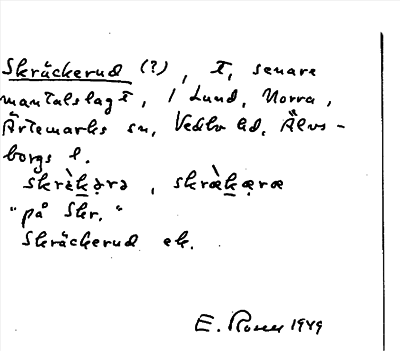 Skräckerud (?), t, senare
mantalslagt, / Lund, Norra,
Ärtemarks sn, Vedbo hd, Älvs-
borgs l.
skræ̀kərə, skræ̀kæræ
"på Skr."
Skräckerud ek.
E. Rosell 1949